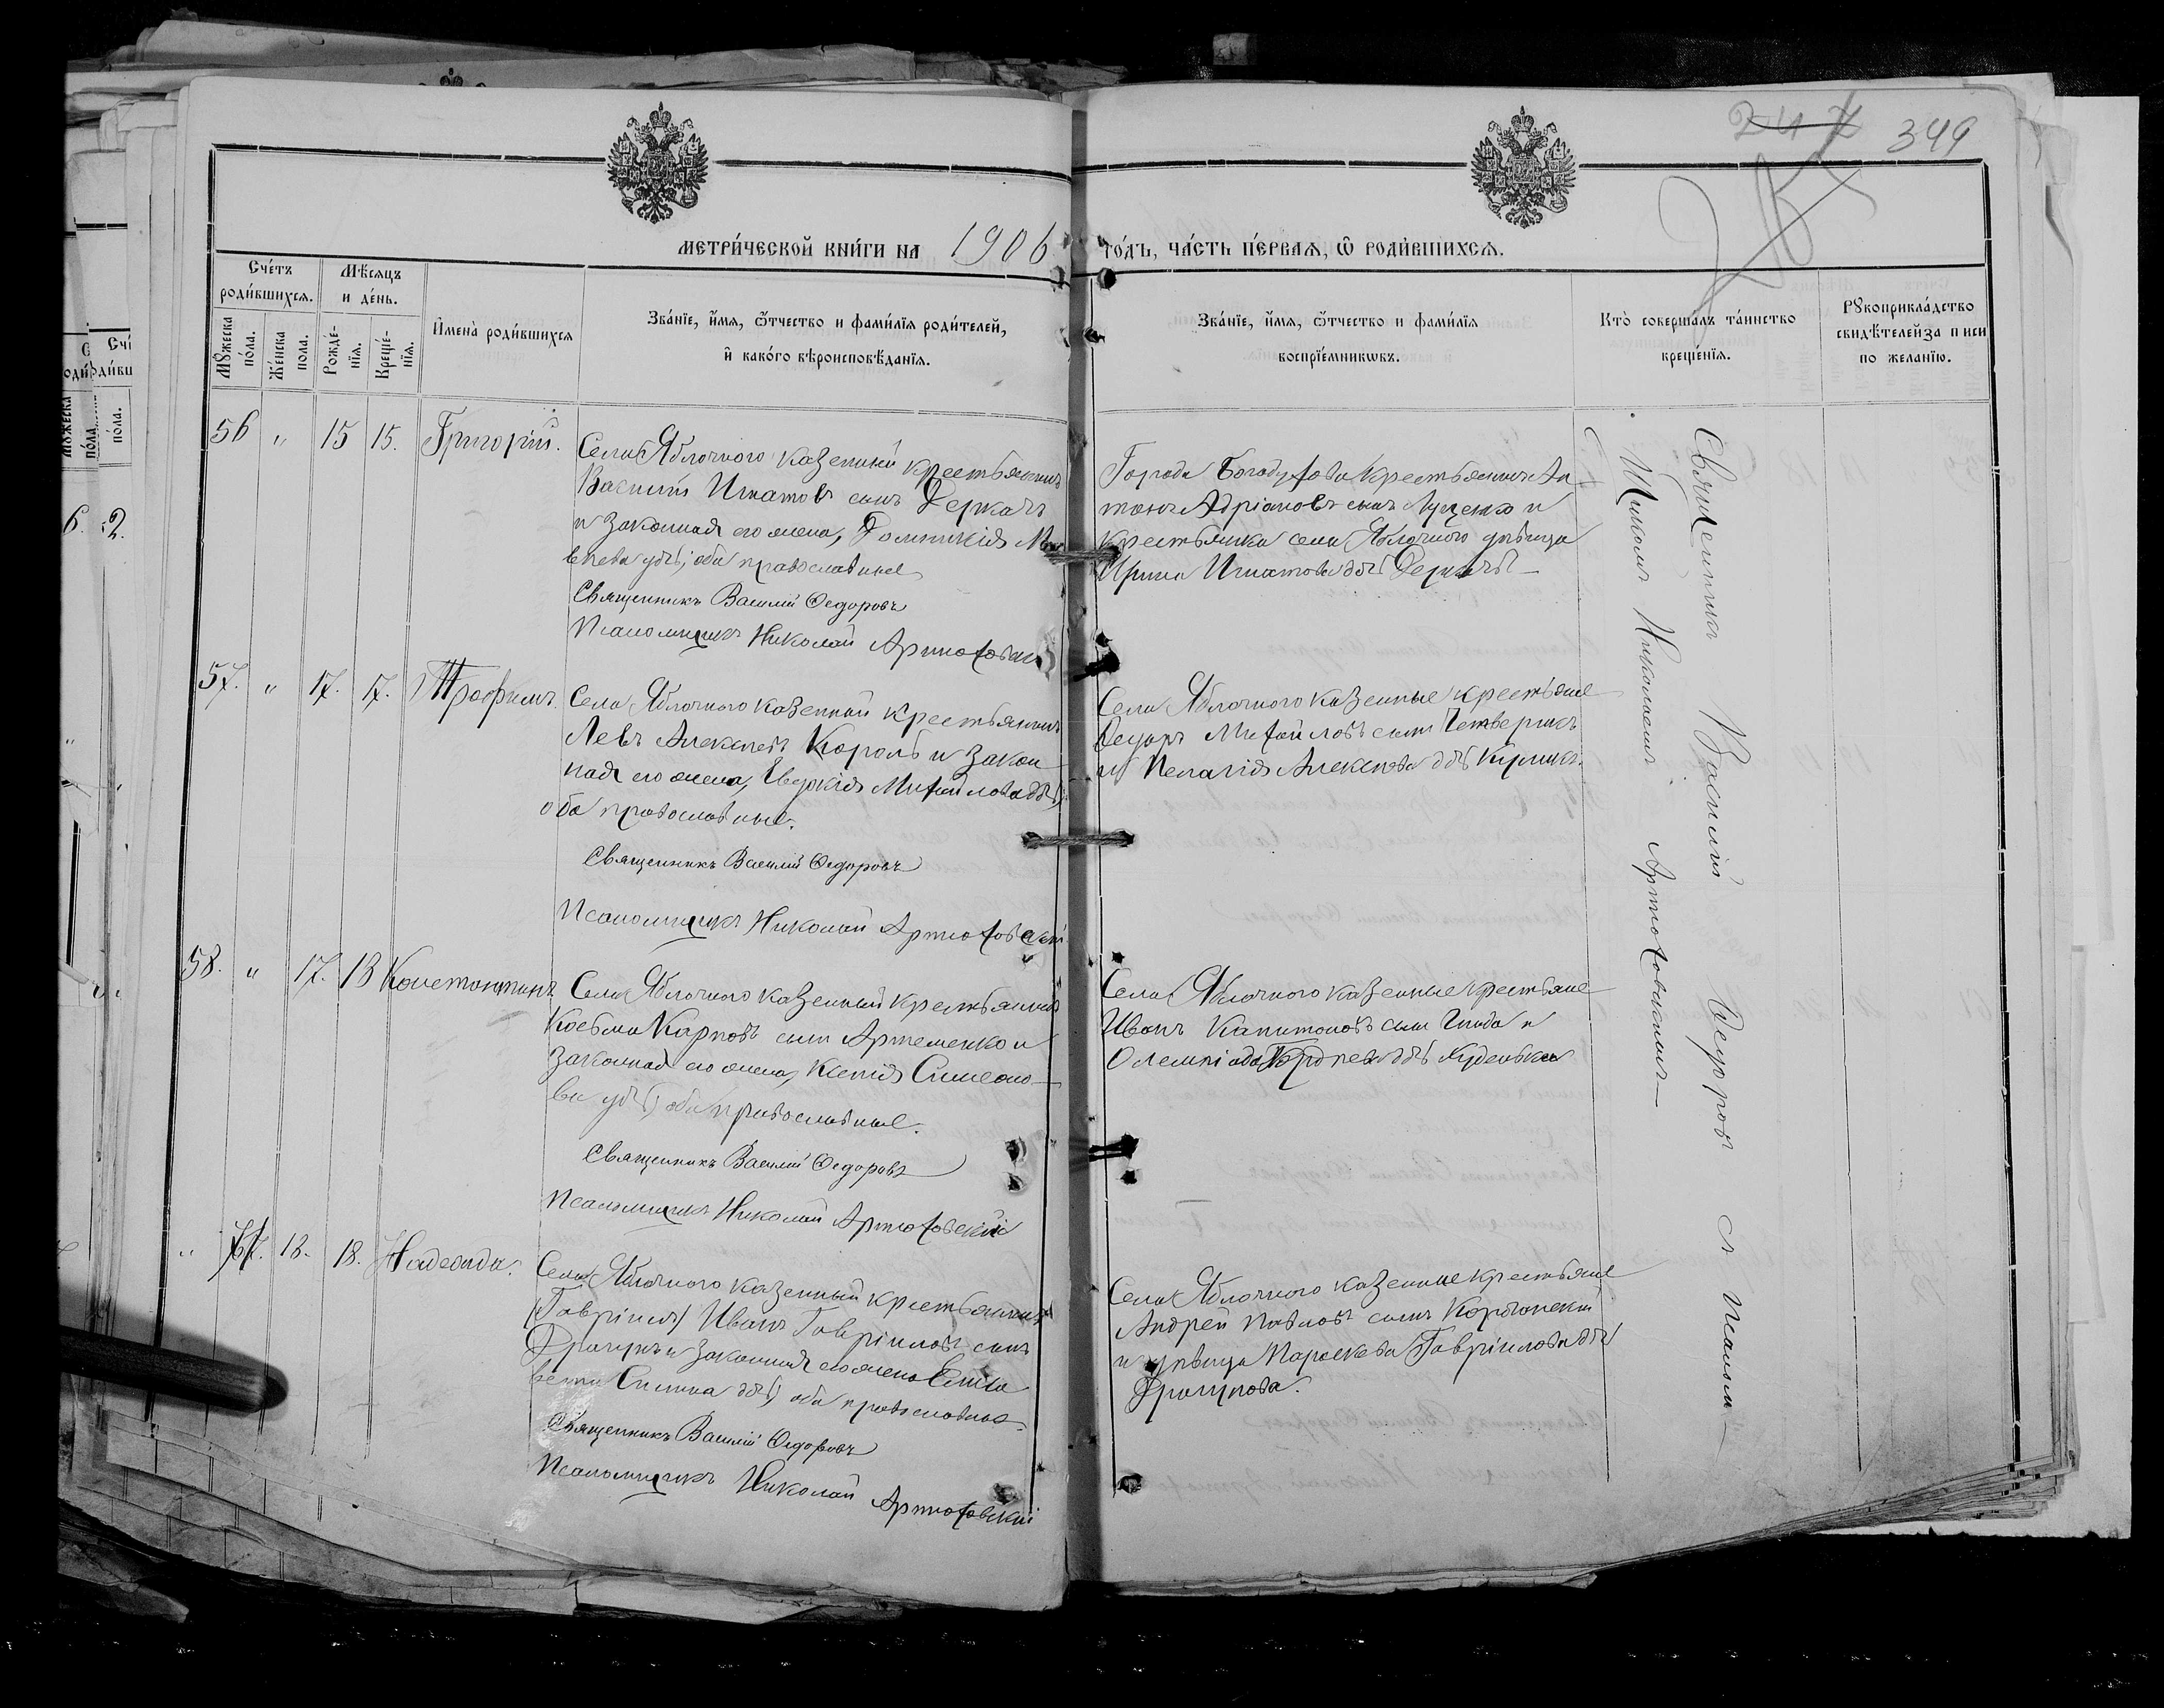 247 349
МЕТРИ́ЧЕСКОЙ КНИ́ГИ НА 1906 ГО́ДЪ, ЧА́СТЬ ПЕ́РВАЯ, Ѿ РОДИ́ВШИХСЯ.
Сче́тъ роди́вшихся.
Мѣ́сяцъ и де́нь.
Мꙋ́жеска по́ла.
Же́нска по́ла.
Рожде́нїя.
Креще́нїя.
И҆мена̀ роди́вшихся
Зва́нїе, и҆́мя, ѻ҆́тчество и фами́лїя роди́телей,
и҆ како́гѡ вѣроисповѣ́данїя.
Зва́нїе, и҆́мя, ѻ҆́тчество и фами́лїя
воспрїе́мникѡвъ.
Кто̀ соверша́лъ та́инство
креще́нїя.
Рꙋкоприкла́дство
свидѣ́телей за писи
по жела́нїю.
56 „ 15 15. Григорій.
Села Яблочного казенный крестьянинъ
Василій Игнатовъ сынъ Деркачъ
и законная его жена, Домникія
дчь, оба православные
Священникъ Василій Ѳедоровъ
Псаломщикъ Николай Артюховскій
Города Богодухова крестьянинъ Ан
тонъ Адріановъ сынъ Луценко и
крестьянка села Яблочного дѣвица
Ирина Игнатова дчь
57. „ 17. 17. Трофимъ
Села Яблочного казенный крестьянинъ
Левъ Алексѣевъ Король и закон
ная его жена, Евдокія Михаилова дчь,
оба православные.
Священникъ Василій Ѳедоровъ
Псаломщикъ Николай Артюховскій
Села Яблочного казенные крестьяне
Ѳедоръ Михайловъ сынъ Четверикъ
и Пелагія Алексѣева дчь
58. „ 17. 18 Константинъ
Села Яблочного казенный крестьянинъ
Косьма Карповъ сынъ Артеменко и
законная его жена, Ксенія Симеоно
ва дчь, оба православные.
Священникъ Василій Ѳедоровъ
Псаломщикъ Николай Артюховскій
Села Яблочного казенные крестьяне
Иванъ Капитоновъ сынъ и
Олемпіада дчь
„ 18. 18. Надежда.
Села Яблочного казенный крестьянинъ
(Гавріилъ) Иванъ Гавріиловъ сынъ
и законная его жена Елиса
вета дчь, оба православные.
Священникъ Василій Ѳедоровъ
Псаломщикъ Николай Артюховскій
Села Яблочного казенные крестьяне
Андрей Павловъ сынъ
и дѣвица Параскева Гавріилова дчь
Священникъ Василій Ѳедоровъ съ псалом
щикомъ Николаемъ Артюховскимъ